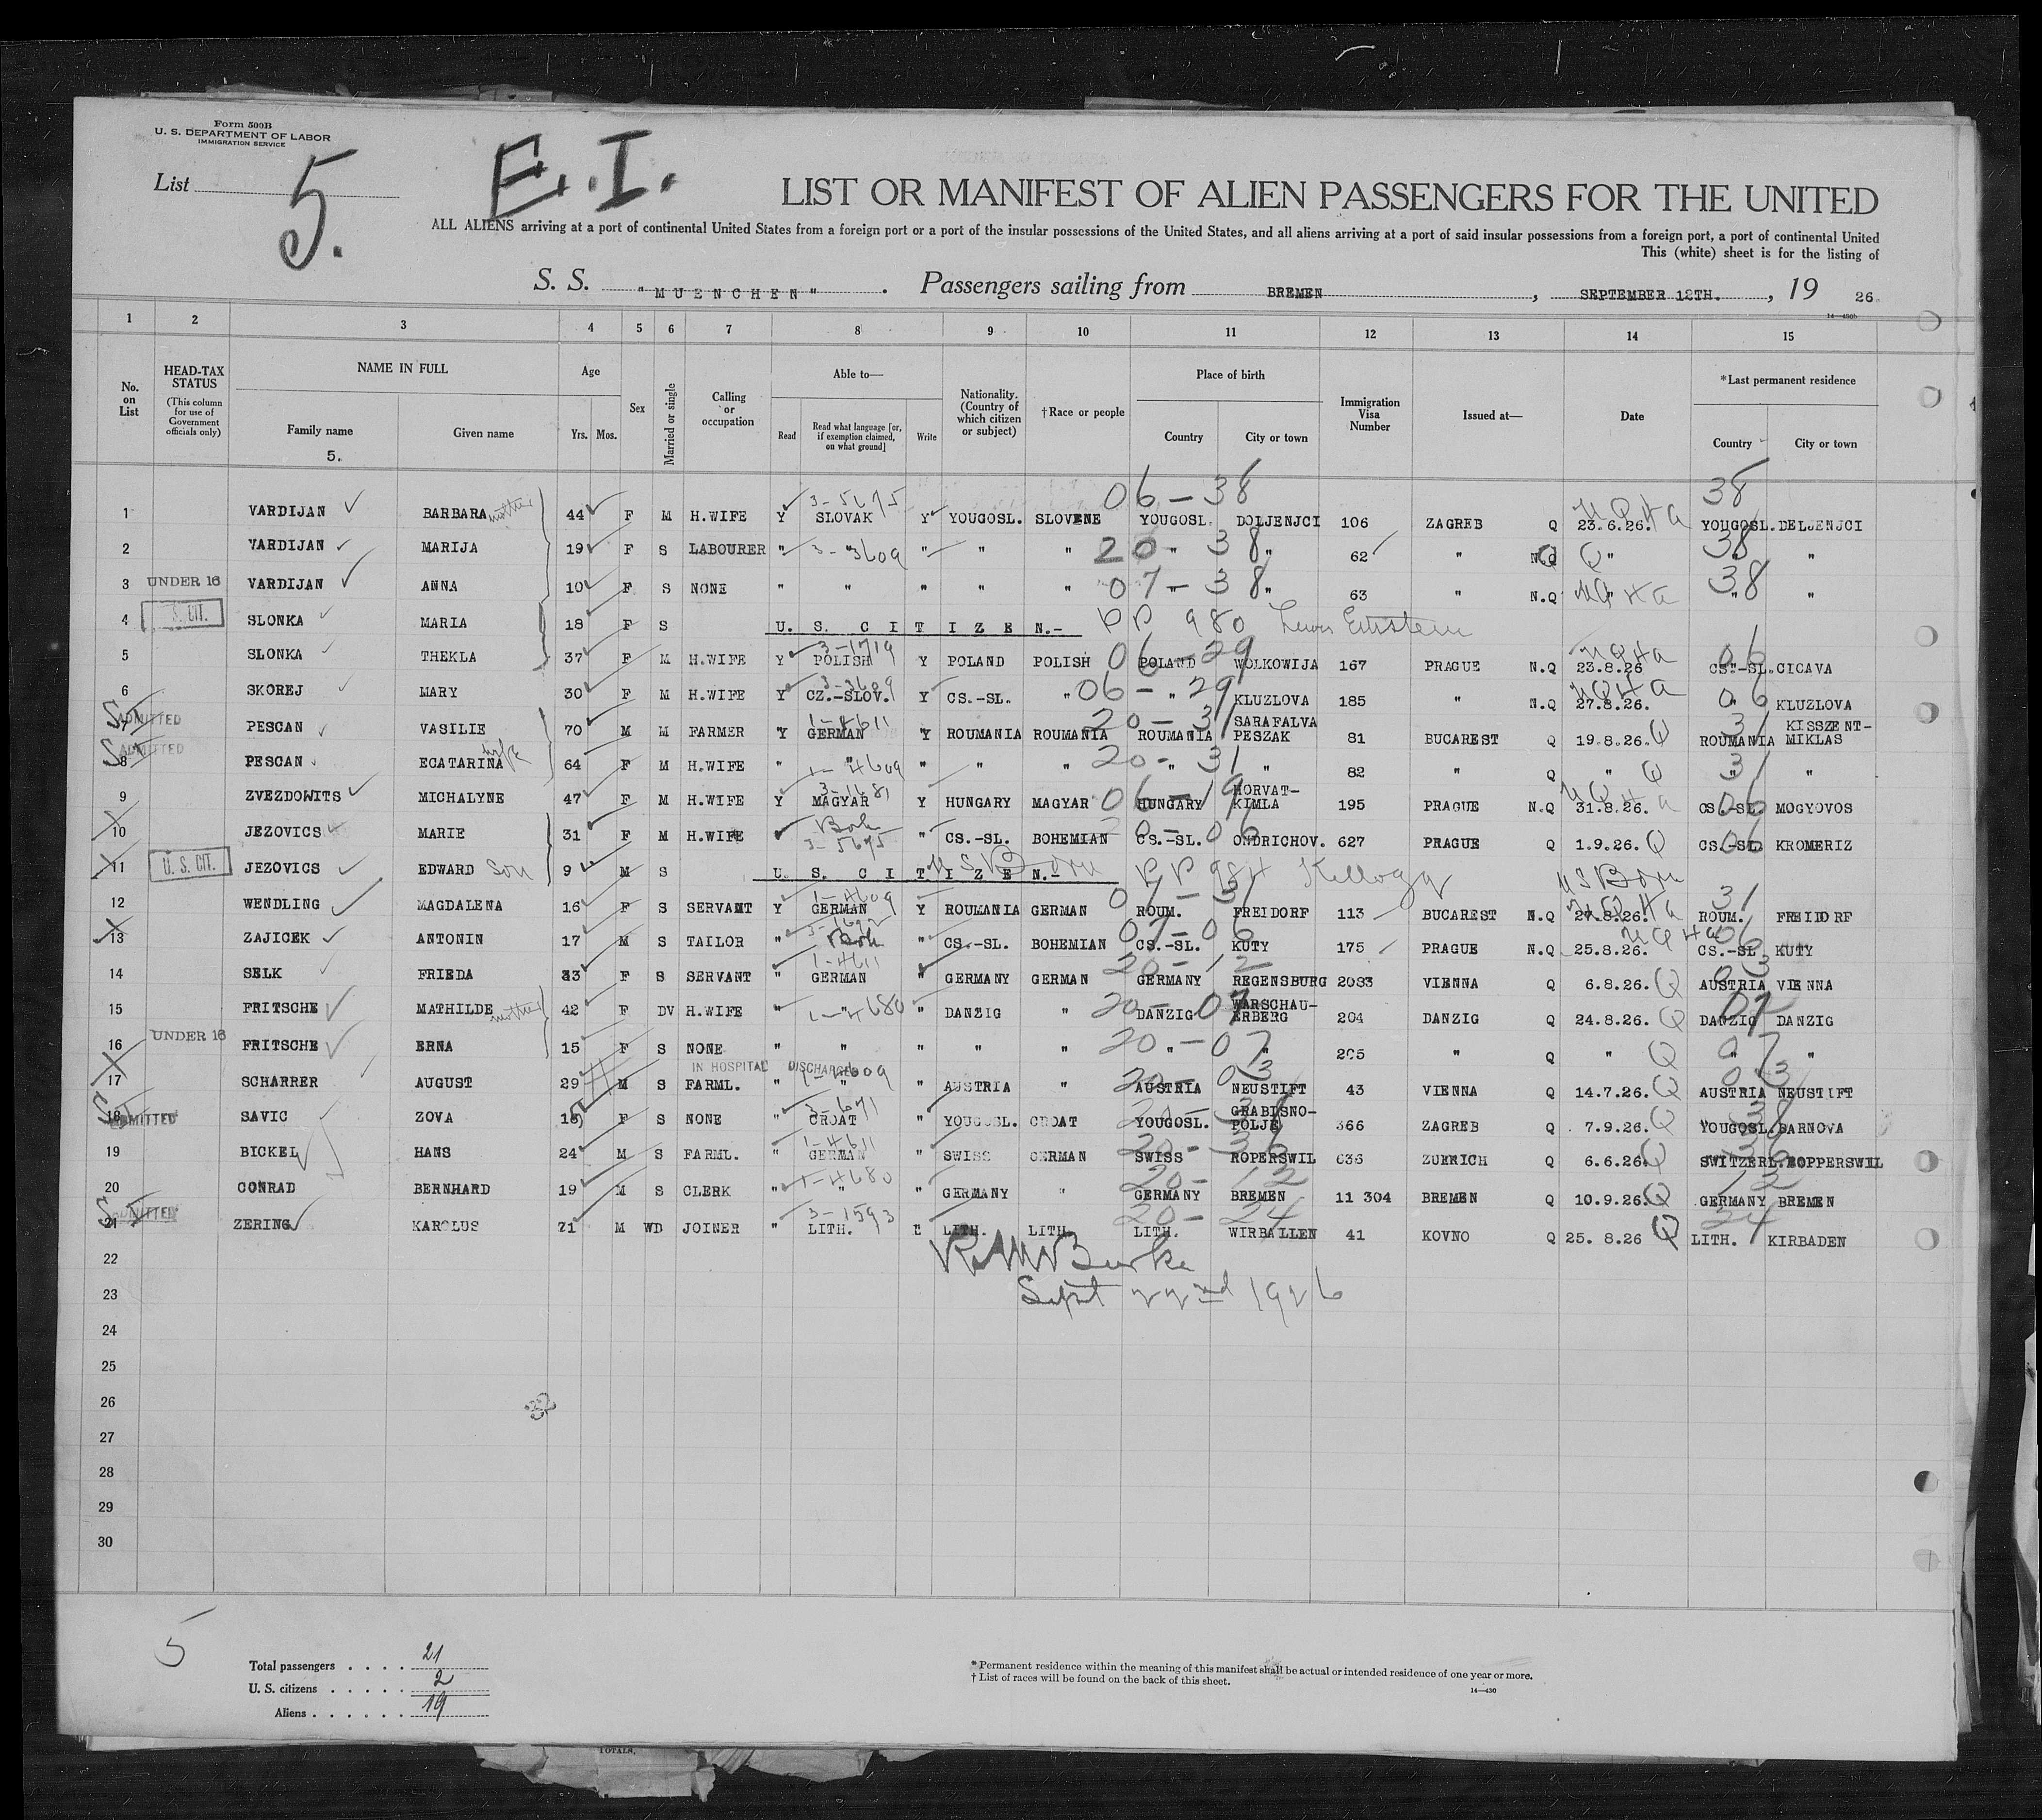 Form 500B
U. S. DEPARTMENT OF LABOR
IMMIGRATION SERVICE
List 5.
E. I.
LIST OR MANIFEST OF ALIEN PASSENGERS FOR THE UNITED
ALL ALIENS arriving at a port of continental United States from a foreign port or a port of the insular possessions of the United States, and all aliens arriving at a port of said insular possessions from a foreign port, a port of continental United
This (white) sheet is for the listing of
S. S. "MUENCHEN". Passengers sailing from BREMEN, SEPTEMBER 12TH., 19 26.
14—430b
1 2 3 4 5 6 7 8 9 10 11 12 13 14 15
No. on List HEAD-TAX STATUS (This column for use of Government officials only) NAME IN FULL Family name Given name Age Yrs. Mos. Sex Married or single Calling or occupation Able to— Read Read what language [or, if exemption claimed, on what ground] Write Nationality. (Country of which citizen or subject) †Race or people Place of birth Country City or town Immigration Visa Number Issued at— Date *Last permanent residence Country City or town
5.
06 – 38 38
1 VARDIJAN BARBARA mother 44 F M H.WIFE Y 3-5675 SLOVAK Y YOUGOSL. SLOVENE YOUGOSL. DOLJENJCI 106 ZAGREB Q 23.6.26. YOUGOSL. DELJENJCI
2 VARDIJAN MARIJA 19 F S LABOURER " 3-3609 " " " 20 " 38 " 62 " N.Q Q " 38 " "
3 UNDER 16 VARDIJAN ANNA 10 F S NONE " " " " " 07 – 38 " 63 " N.Q " 38 " "
4 U.S. CIT. SLONKA MARIA 18 F S U. S. CITIZEN.- PP 980 Lewis Einstein
5 SLONKA THEKLA 37 F M H.WIFE Y 3-1719 POLISH Y POLAND POLISH 06 – 29 POLAND WOLKOWIJA 167 PRAGUE N.Q 23.8.26 06 CS.-SL. CICAVA
6 SKOREJ MARY 30 F M H.WIFE Y 3-3609 CZ.-SLOV. Y CS.-SL. " 06 – " 29 KLUZLOVA 185 " N.Q 27.8.26. 06 " KLUZLOVA
7 ADMITTED PESCAN VASILIE 70 M M FARMER Y 1-4611 GERMAN Y ROUMANIA ROUMANIA 20 – 31 ROUMANIA SARAFALVA PESZAK 81 BUCAREST Q 19.8.26. Q 31 ROUMANIA KISSZENT-MIKLAS
8 ADMITTED PESCAN ECATARINA wife 64 F M H.WIFE " 1-4609 " " " " 20 – 31 " " 82 " Q " Q 31 " "
9 ZVEZDOWITS MICHALYNE 47 F M H.WIFE Y 3-1681 MAGYAR Y HUNGARY MAGYAR 06 – 19 HUNGARY HORVAT-KIMLA 195 PRAGUE N.Q 31.8.26. 06 CS-SL. MOGYOVOS
10 JEZOVICS MARIE 31 F M H.WIFE Boh 3-5675 " CS.-SL. BOHEMIAN 20 – 06 CS.-SL. ONDRICHOV. 627 PRAGUE Q 1.9.26. Q 06 CS.-SL. KROMERIZ
11 U.S. CIT. JEZOVICS EDWARD son 9 M S U. S. CITIZEN.- U S Born PP 984 Kellogg U S Born
12 WENDLING MAGDALENA 16 F S SERVANT Y 1-4609 GERMAN Y ROUMANIA GERMAN 07 – 31 ROUM. FREIDORF 113 BUCAREST N.Q 27.8.26. 31 ROUM. FREIDORF
13 ZAJICEK ANTONIN 17 M S TAILOR " 3-1692 Boh " CS.-SL. BOHEMIAN 07 – 06 CS.-SL. KUTY 175 PRAGUE N.Q 25.8.26. 06 CS.-SL KUTY
14 SELK FRIEDA 33 F S SERVANT " 1-4611 GERMAN " GERMANY GERMAN 20 – 12 GERMANY REGENSBURG 2083 VIENNA Q 6.8.26. Q 03 AUSTRIA VIENNA
15 FRITSCHE MATHILDE mother 42 F DV H.WIFE " 1-4680 " " DANZIG " 20 – 07 DANZIG WARSCHAU-ERBERG 204 DANZIG Q 24.8.26. Q 07 DANZIG DANZIG
16 UNDER 16 FRITSCHE ERNA 15 F S NONE " " " " " 20 – 07 " " 205 " Q " Q 07 " "
IN HOSPITAL DISCHARGED
17 SCHARRER AUGUST 29 M S FARML. " 1-4609 " " AUSTRIA " 20 – 03 AUSTRIA NEUSTIFT 43 VIENNA Q 14.7.26. Q 03 AUSTRIA NEUSTIFT
18 ADMITTED SAVIC ZOVA 18 F S NONE " 3-671 CROAT " YOUGOSL. CROAT 20 – 38 YOUGOSL. GRABISNO-POLJE 366 ZAGREB Q 7.9.26. Q 38 YOUGOSL. BARNOVA
19 BICKEL HANS 24 M S FARML. " 1-4611 GERMAN " SWISS GERMAN 20 – 36 SWISS ROPERSWIL 636 ZURRICH Q 6.6.26. Q 36 SWITZERL. ROPPERSWIL
20 CONRAD BERNHARD 19 M S CLERK " 1-4680 " " GERMANY " 20 – 12 GERMANY BREMEN 11 304 BREMEN Q 10.9.26. Q 12 GERMANY BREMEN
21 ADMITTED ZERING KAROLUS 71 M WD JOINER " 3-1593 LITH. " LITH. LITH. 20 – 24 LITH. WIRBALLEN 41 KOVNO Q 25. 8.26 Q 24 LITH. KIRBADEN
22 Burke
23 Sept 22nd 1926
24
25
26
27
28
29
30
5
Total passengers . . . . 21
U. S. citizens . . . . . 2
Aliens . . . . . . 19
* Permanent residence within the meaning of this manifest shall be actual or intended residence of one year or more.
† List of races will be found on the back of this sheet.
14—430
TOTALS,